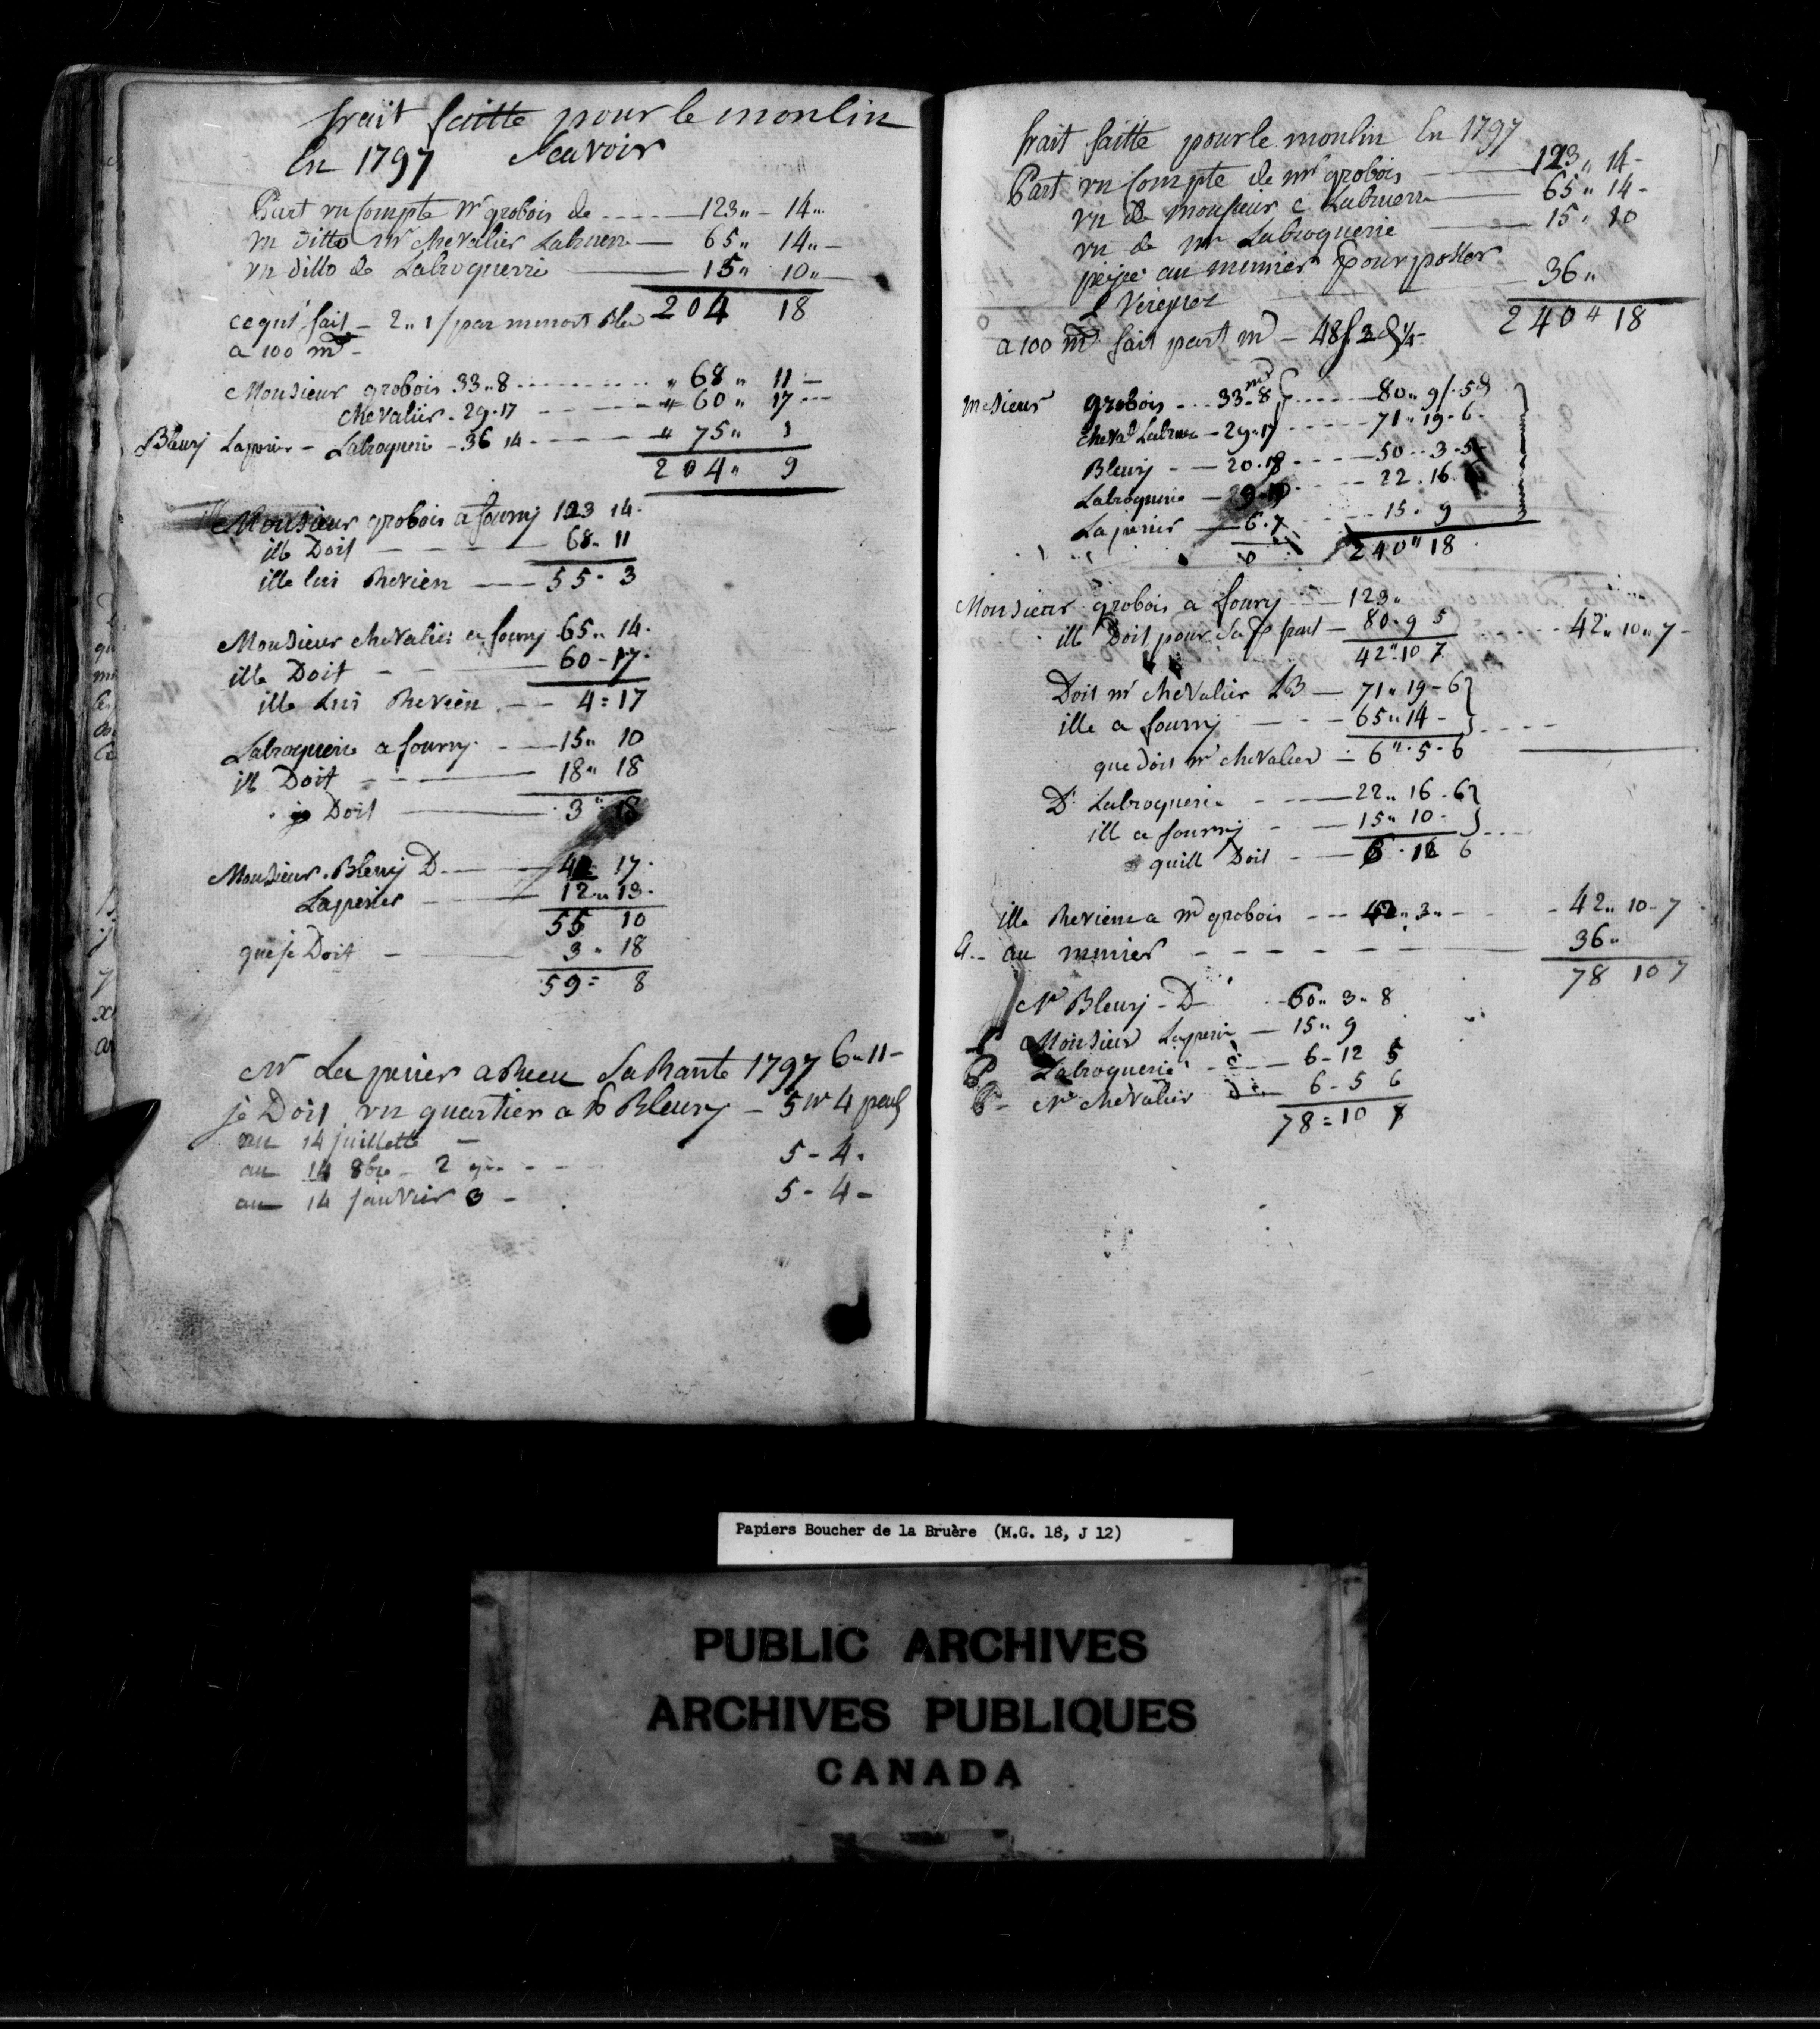 frait faitte pour le moulin
En 1797 Scavoir
Part un Compte Mr grobois de 123" - 14"
un ditto Mr chevalier Labruere 65" 14" -
un ditto de Labroquerri 15" 10"
204 18
ce qui fait - 2" 1/ par minort Bled
a 100 md -
Monsieur grobois 33"8 " 68" 11 -
chevalier - 29-17 " 60" 17
Bleurj Laperier - Labroquerie - 36 14 " 75" 1
204" 9
Monsieur grobois a fourny 123 14-
ille Doit 68- 11
ille lui Revien 55 - 3
Monsieur chevalier a fourny 65" 14-
ille Doit 60 - 17-
ille Lui Revien 4 = 17
Labroquerie a fourny 15" 10
ill Doit 18" 18
je Doit 3" 18
Monsieur Bleurj D 42 17-
Laperier 12" 13-
55 10
que je Doit 3" 18
59 = 8
Mr Laperier a Recu sa Rante 1797 6" 11 -
je Doit un quartier a Bleury - 5 m 4
au 14 juillette -
au 14 8bre - 2 5 - 4-
au 14 janvier 3 - 5 - 4 -
frait faitte pour le moulin En 1797
Part un Compte de mr grobois 123" 14 -
un de monsieur c Labruere 65" 14 -
un de mr Labroquerie 15" 10
au munier pour poser 36"
240" 18
a 100 md fait part md - 48
mesieur grobois 33md 8 80" 9/-5d
cheval Labruer - 29"17 71" 19-6-
Bleurj 20-18 50 - 3-5
Labroquerie 22 - 16
Laperier 6-7 15" 9
240" 18
Monsieur grobois a fourny 123"
ill Doit pour sa part - 80-9 5 42" 10" 7 -
42"10 7
Doit mr chevalier LB - 71" 19 - 6
ille a fourny 65" 14 -
que doit mr chevalier - 6"-5-6
D. Labroquerie 22" 16-6
ill a fourny 15" 10-
quill Doit 6 - 12 6
ille Reviene a mr grobois 42" 3" 42" 10-7
a - au munier 36"
78 10 7
Mr Bleurj - D 50" 3" 8
Monsieur Laperier - 15" 9
Labroquerie 6 - 12 5
Mr chevalier 6 - 5 6
78 = 10 7
Papiers Boucher de la Bruère (M.G. 18, J 12)
PUBLIC ARCHIVES
ARCHIVES PUBLIQUES
CANADA